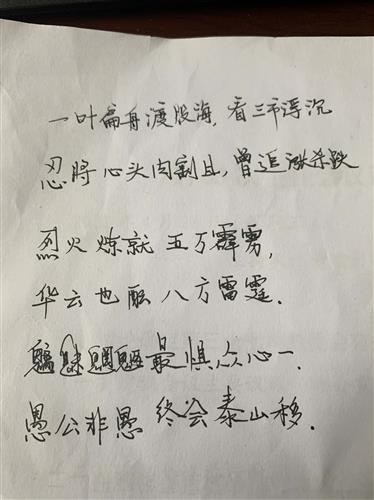 一叶扁舟渡股海，看三市浮沉
忍将心头肉割且，曾追涨杀跌
烈火炼就五万霹雳，
华云也酝八方雷霆．
魑魅魍魉最惧众心一．
愚公非愚终会泰山移．